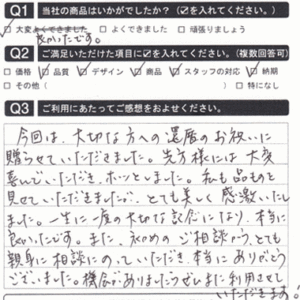 Q1 当社の商品はいかがでしたか？（☑を入れてください。）
☑大変よくできました □よくできました □頑張りましょう
良かったです。
Q2 ご満足いただけた項目に☑を入れてください。（複数回答可）
□価格 ☑品質 ☑デザイン ☑商品 ☑スタッフの対応 ☑納期
□その他（ ） □特になし
Q3 ご利用にあたってご感想をおよせください。
今回は、大切な方への還暦のお祝いに
贈らせていただきました。先方様には大変
喜んでいただき、ホッとしました。私も品ものを
見せていただきましたが、とても美しく感激いたし
ました。一生に一度の大切な記念になり、本当に
良かったです。また、初めの ご相談から、とても
親身に相談にのっていただき、本当にありがとう
ございました。機会がありましたらぜひまた利用させて
いただきます。